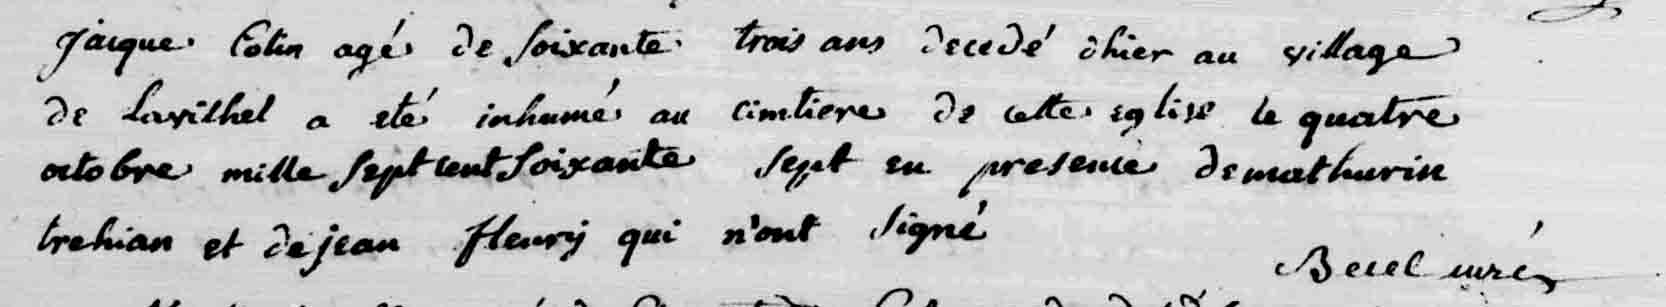 jacque Colin agé de soixante trois ans decedé dhier au village
de Lavilhel a eté inhumé au cimtiere de cette eglise le quatre
octobre mille sept cent soixante sept en presence de mathurin
trehian et de jean fleury qui n'ont signé
Becel curé